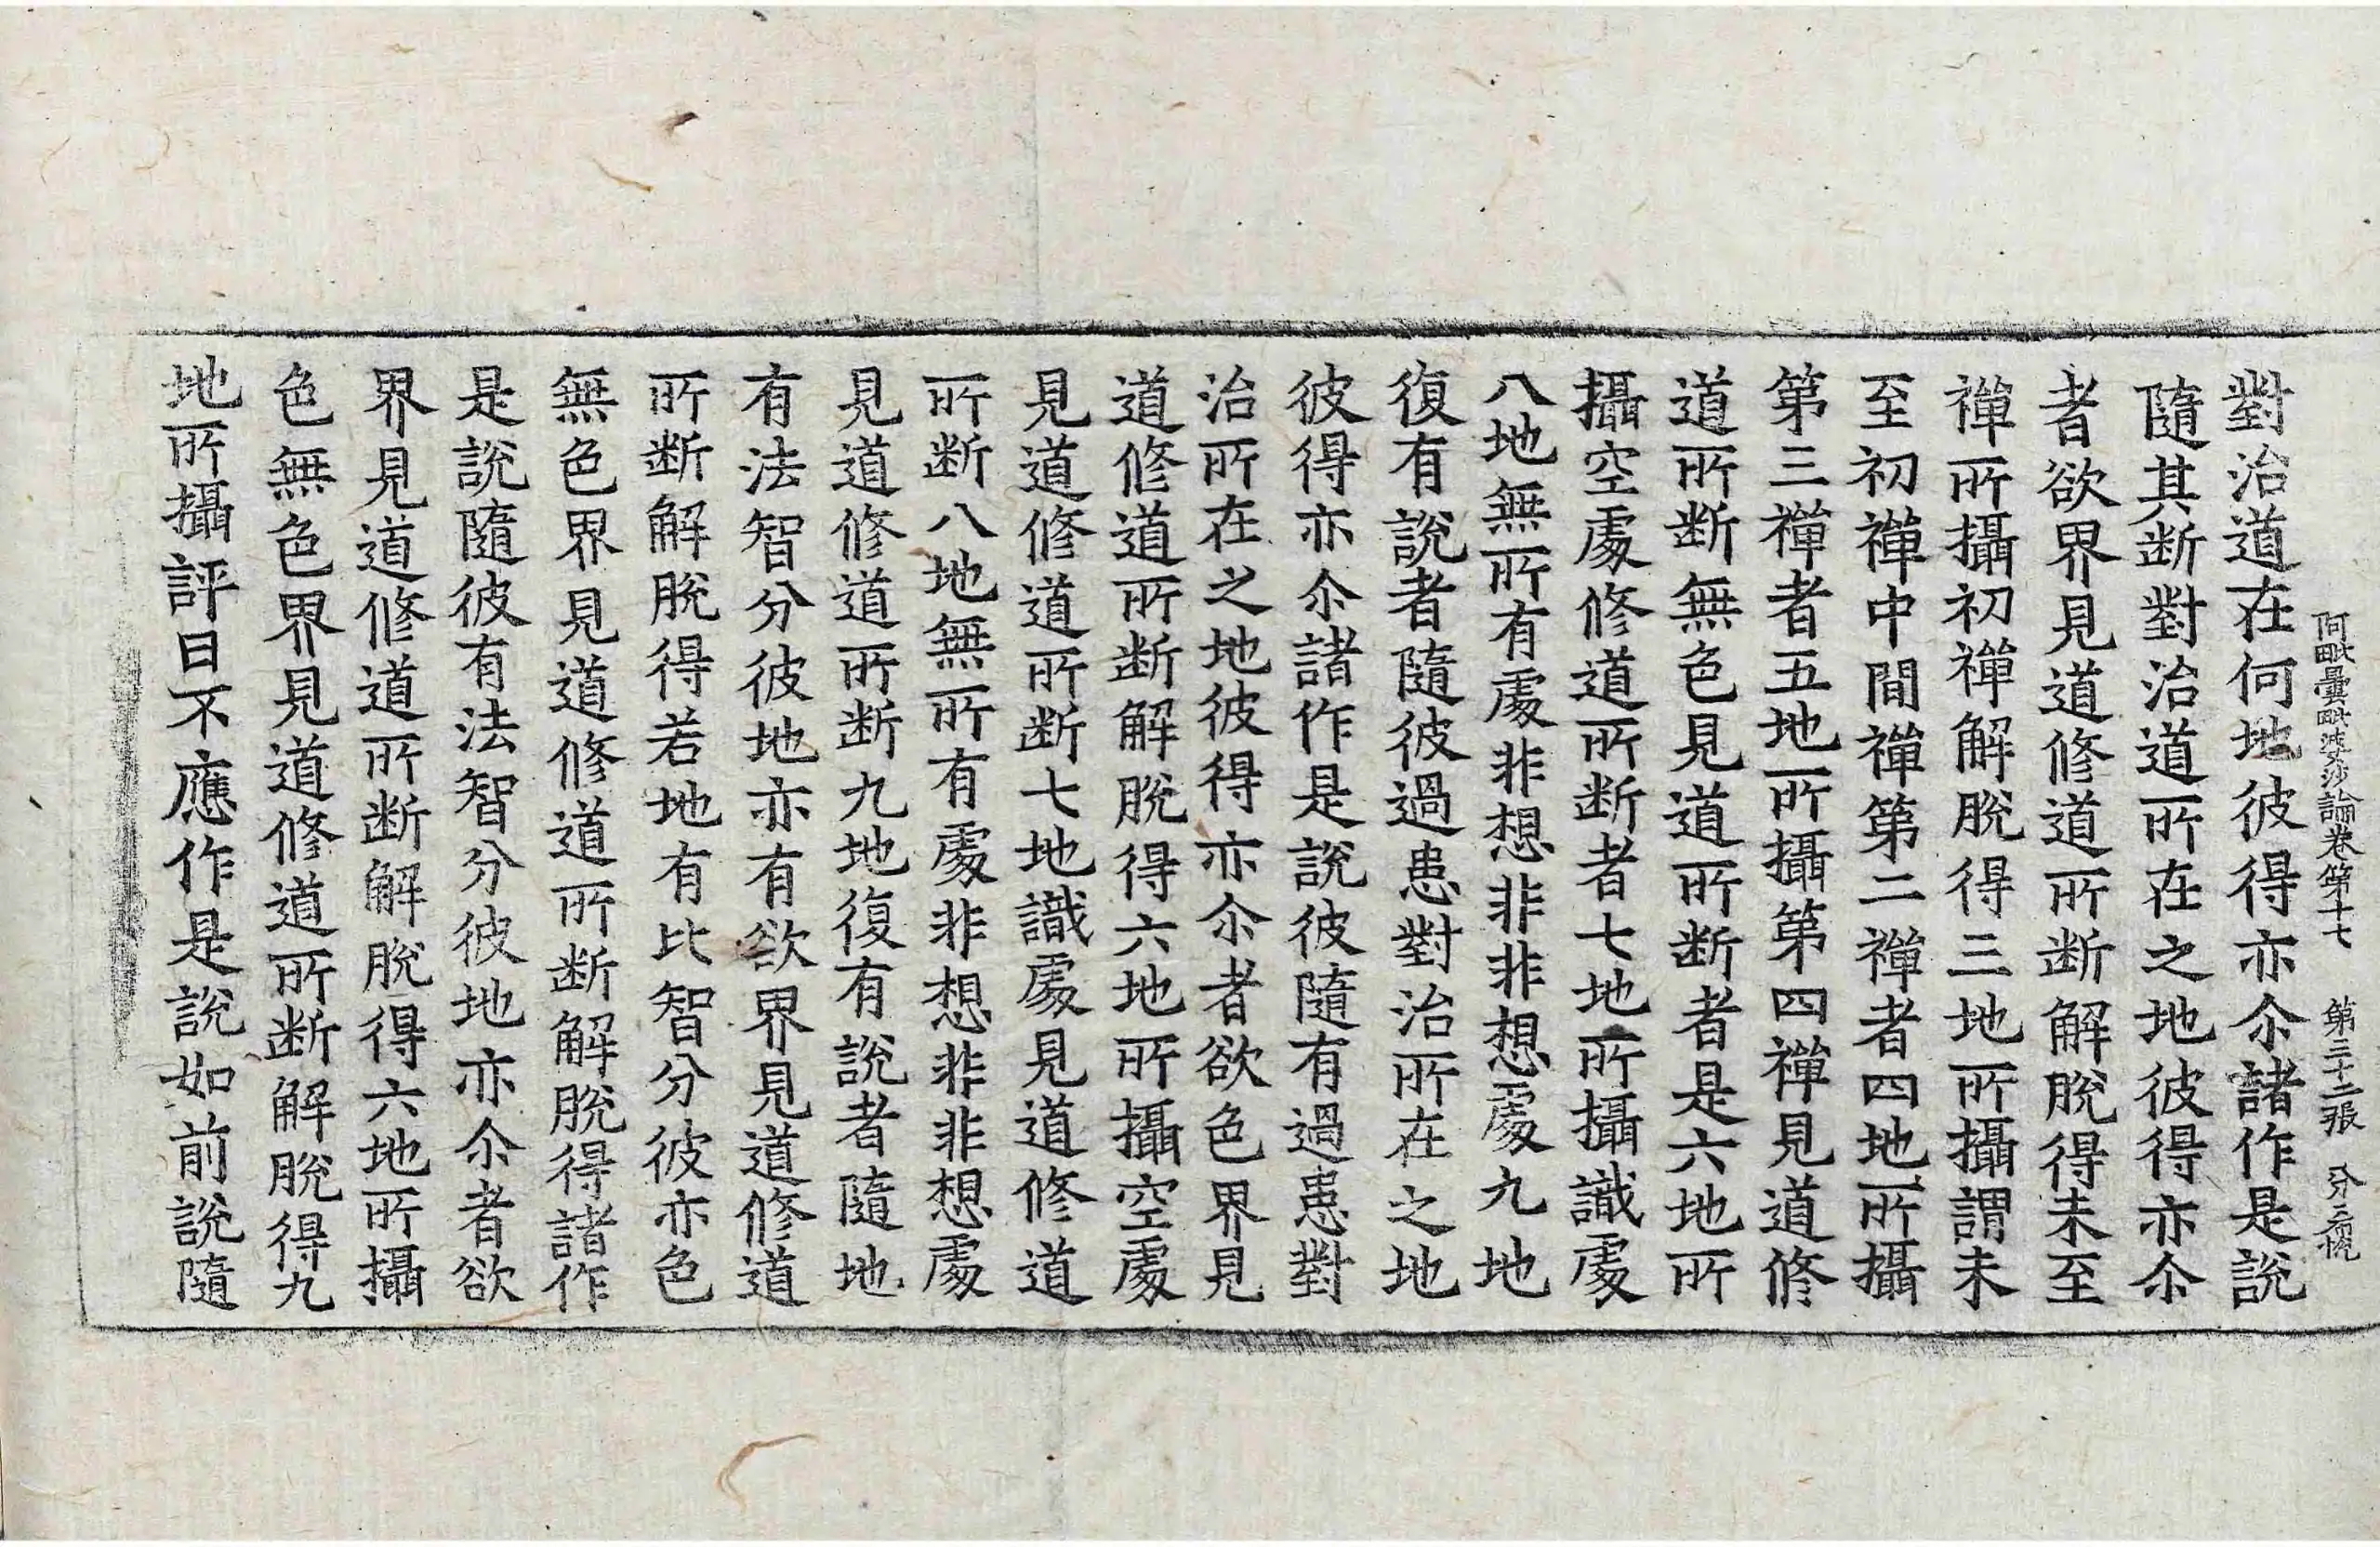 阿毗曇毗婆沙論卷第十七 第三十二張
對治道在何地彼得亦尒諸作是說
隨其断對治道所在之地彼得亦尒
者欲界見道修道所断解脫得未至
禅所攝初禅解脫得三地所攝謂未
至初禅中間禅第二禅者四地所攝
第三禅者五地所攝第四禅見道修
道所断無色見道所断者是六地所
攝空處修道所断者七地所攝識處
八地無所有處非想非非想處九地
復有說者隨彼過患對治所在之地
彼得亦尒諸作是說彼隨有過患對
治所在之地彼得亦尒者欲色界見
道修道所断解脫得六地所攝空處
見道修道所断七地識處見道修道
所断八地無所有處非想非非想處
見道修道所断九地復有說者隨地
有法智分彼地亦有欲界見道修道
所断解脫得若地有比智分彼亦色
無色界見道修道所断解脫得諸作
是說隨彼有法智分彼地亦尒者欲
界見道修道所断解脫得六地所攝
色無色界見道修道所断解脫得九
地所攝評曰不應作是說如前說隨